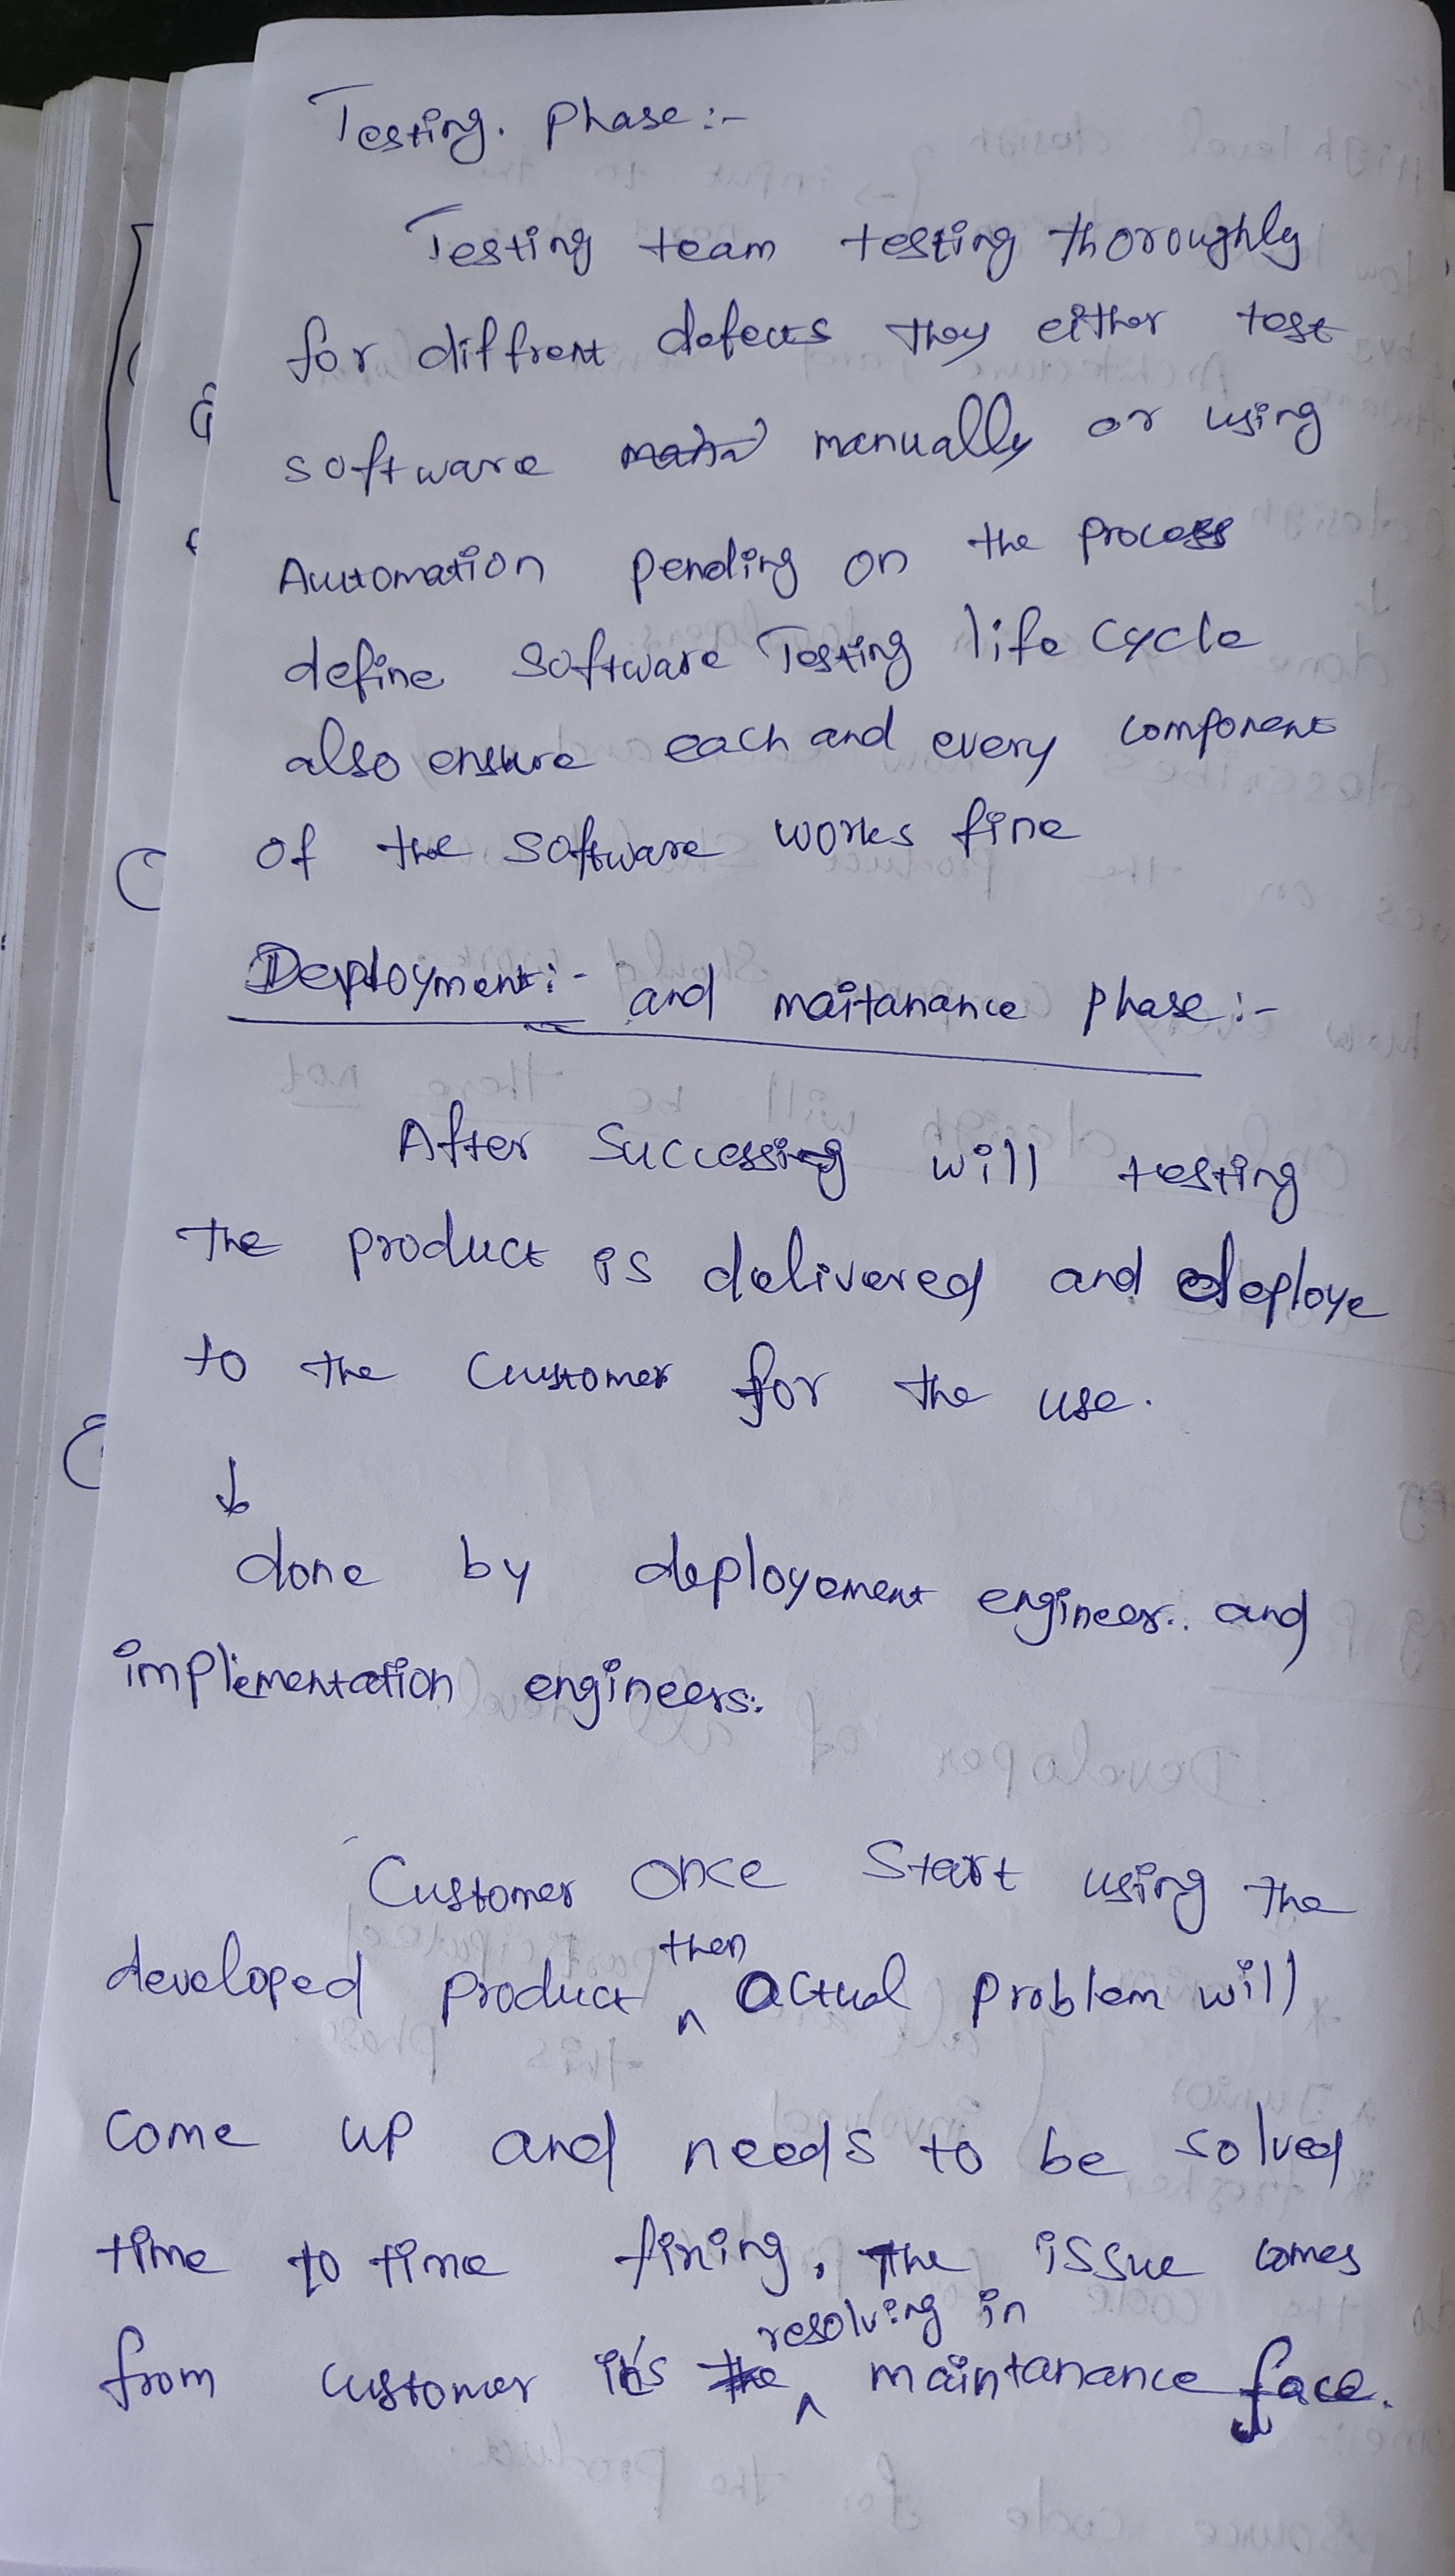 Testing. Phase:-
Testing team testing thoroughly
for diffrent defects they either test
software manually or using
Automation pending on the process
define Software Testing life cycle
also ensure each and every component
of the software works fine
Deployment:- and maitanance phase:-
After Successing will testing
the product is delivered and deploye
to the Customer for the use.
↓
done by deployement engineer.. and
implementation engineers.
Customer once Start using the
developed product then actual problem will
come up and needs to be solved
time to time fixing. The issue comes
from customer it's resolving in maintanance face.